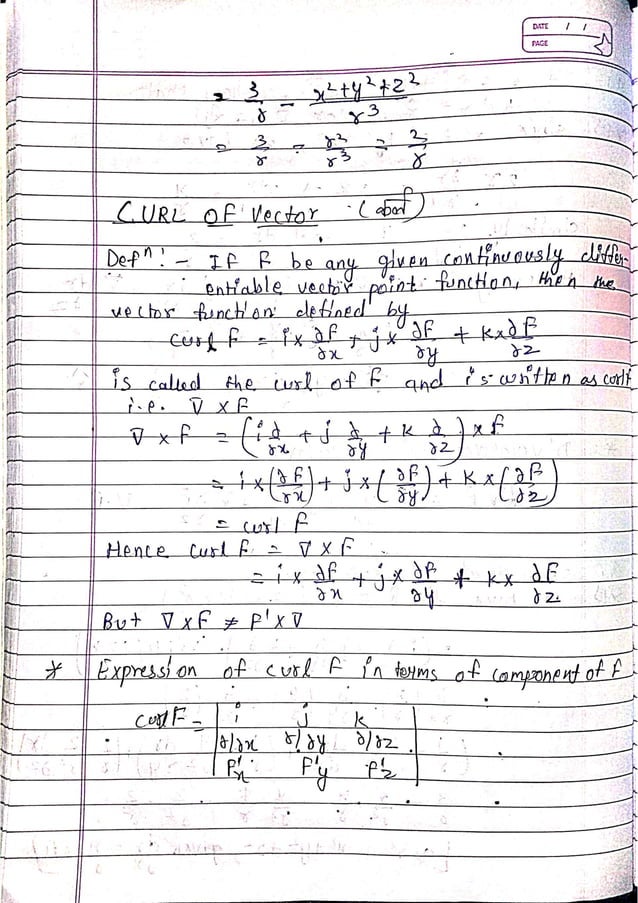 DATE / /
PAGE
= 3/r - x²+y²+z²/r³
= 3/r - r²/r³ = 2/r
CURL OF Vector
Defⁿ:- If F be any given continuously differ-
entiable vector point function, then the
vector function defined by
curl F = i× ∂F/∂x + j× ∂F/∂y + k× ∂F/∂z
is called the curl of F and is written as curl F
i.e. ∇ × F
∇ × F = (i ∂/∂x + j ∂/∂y + k ∂/∂z) × F
= i×(∂F/∂x) + j×(∂F/∂y) + k×(∂F/∂z)
= curl F
Hence curl F = ∇ × F
= i × ∂F/∂x + j× ∂F/∂y + k× ∂F/∂z
But ∇ × F ≠ F' × ∇
* Expression of curl F in terms of component of F
curl F = | i j k |
| ∂/∂x ∂/∂y ∂/∂z |
| F'x F'y F'z |